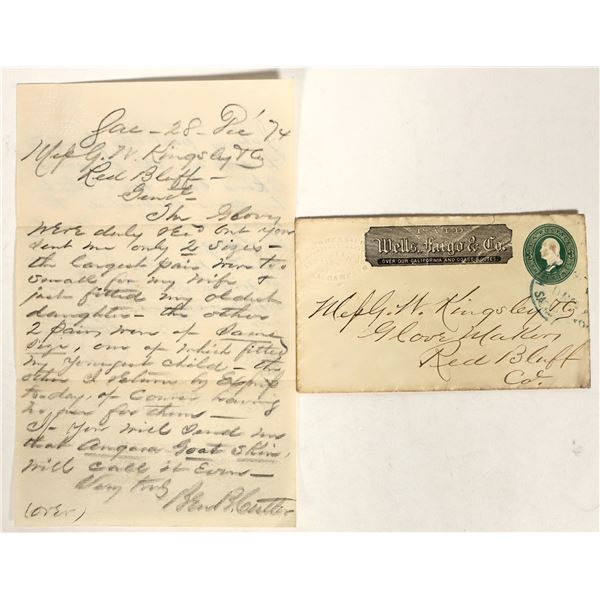 Sac - 28 - Dec '74
Mess G. W. Kingsley & Co
Red Bluff -
Gents -
The Gloves
were duly rec'd but you
sent me only 2 sizes -
the largest pair were too
small for my Wife &
just fitted my oldest
daughter - the other
2 pairs were of same
size, one of which fitted
my Youngest Child - the
other I return by Express
to-day, of course having
no use for them -
If You will Send me
that Angora Goat Skin,
will call it Even -
Very truly
Benj B. Cutler
(over)
PAID
Wells, Fargo & Co.
OVER OUR CALIFORNIA AND COAST ROUTES
Mess G. W. Kingsley & Co
Glove Makers
Red Bluff
Co.